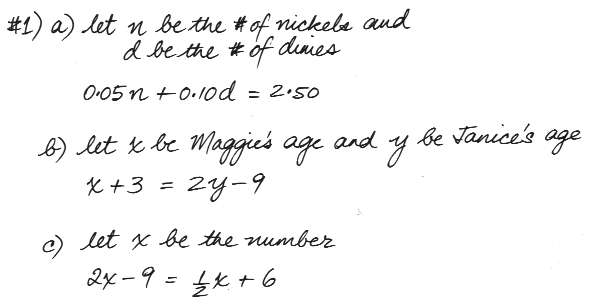 #1) a) let n be the # of nickels and
d be the # of dimes
0.05n + 0.10d = 2.50
b) let x be Maggie's age and y be Janice's age
x + 3 = 2y - 9
c) let x be the number
2x - 9 = 1/2 x + 6